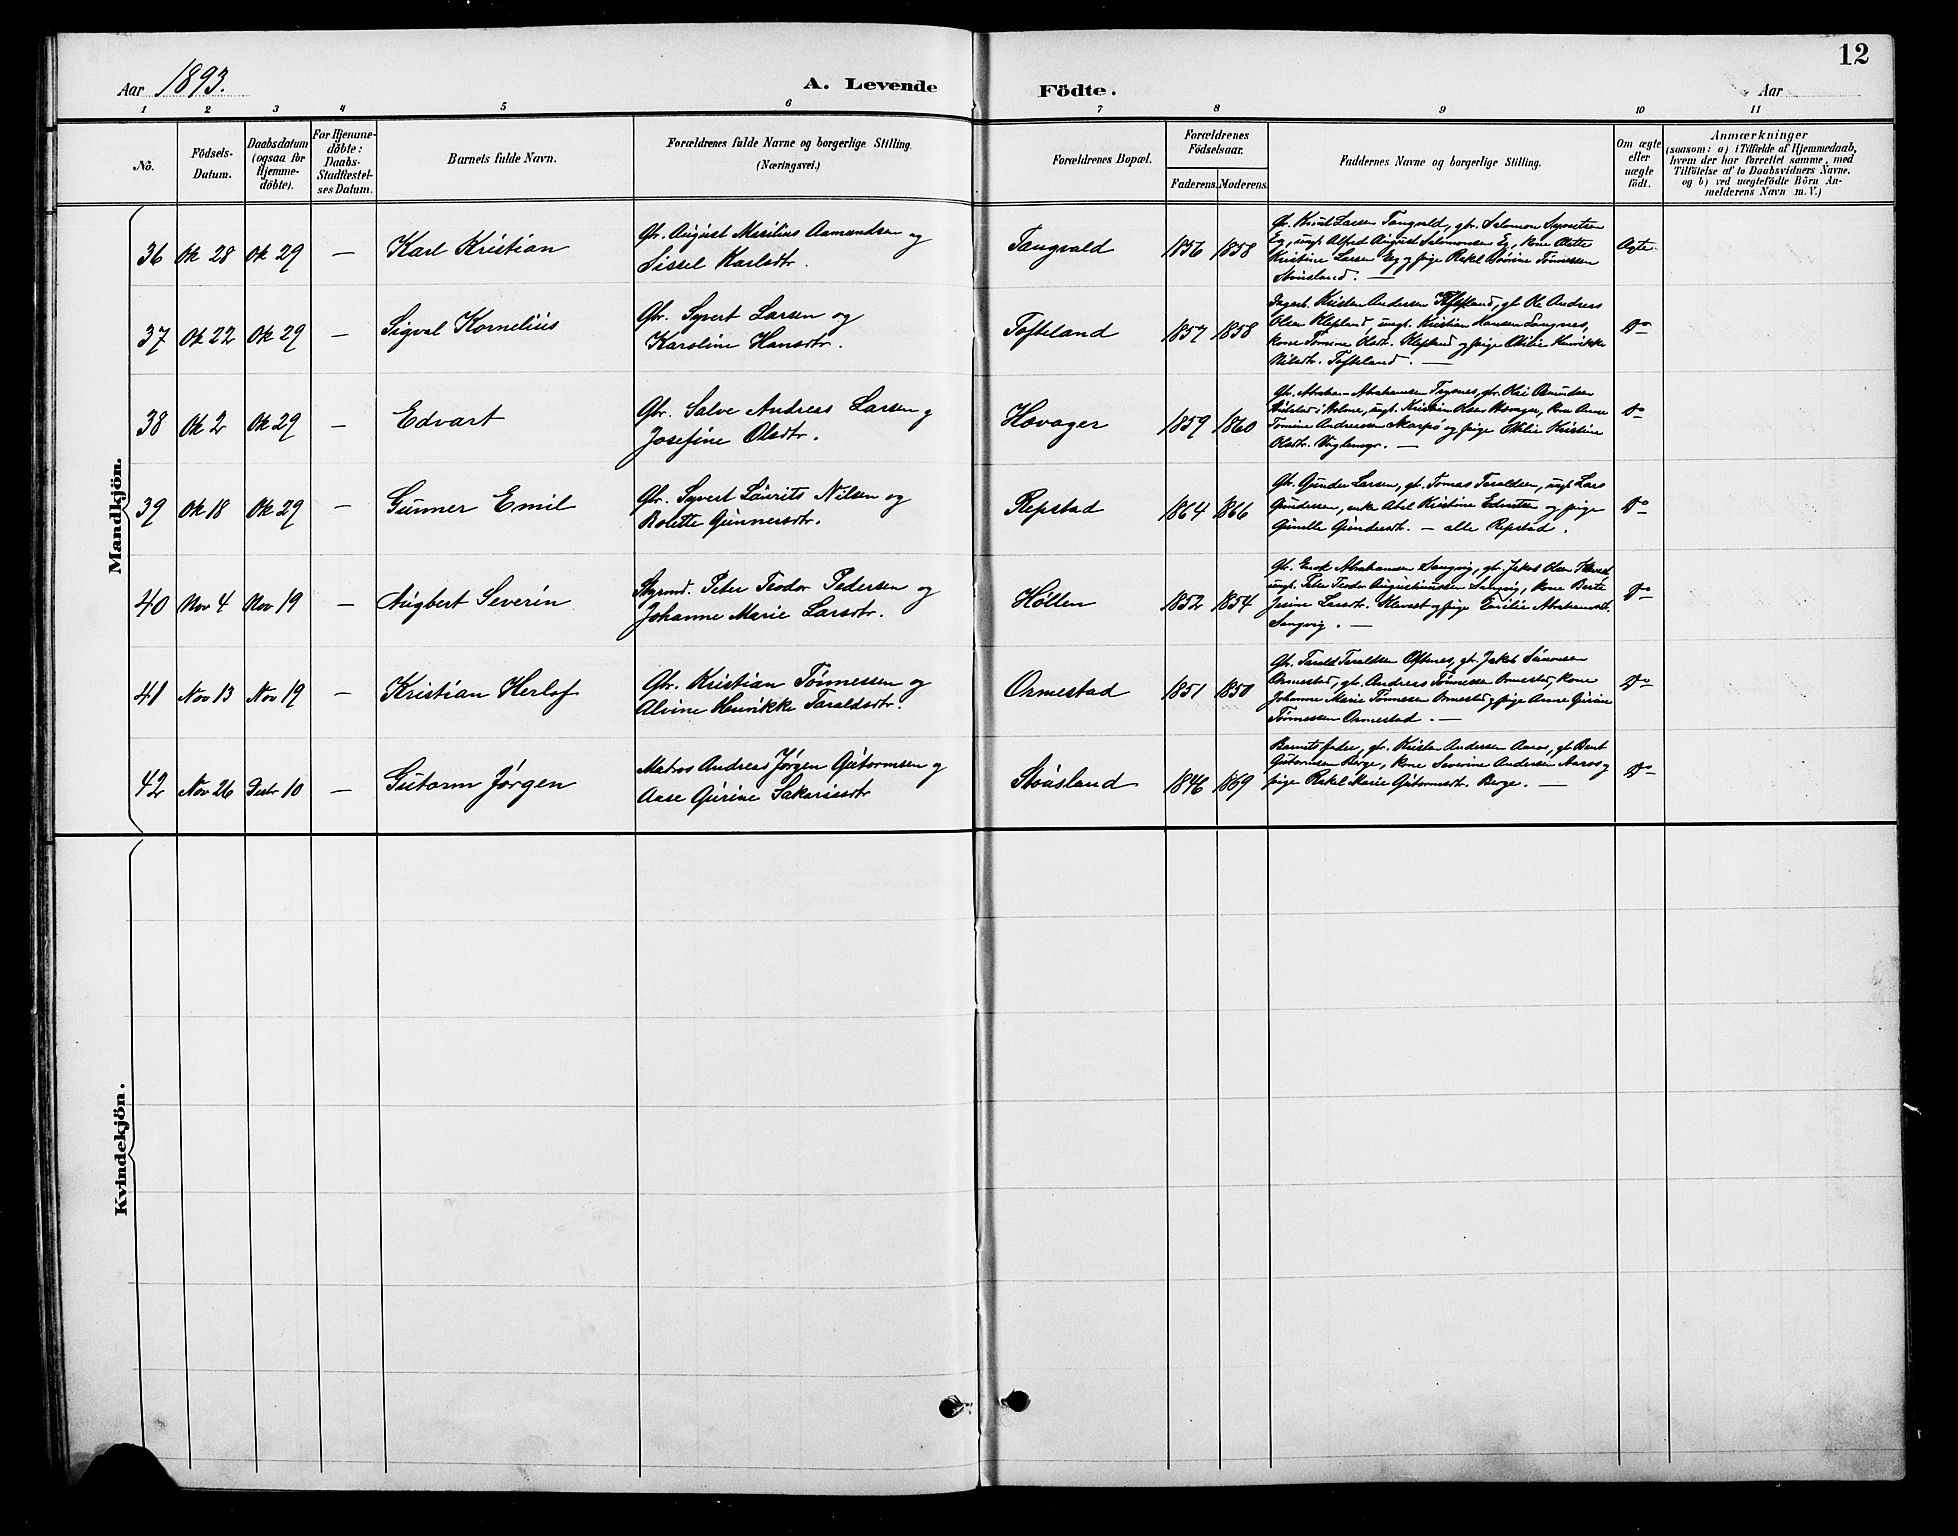 12
Aar 1893.
A. Levende Födte.
Aar
1 2 3 4 5 6 7 8 9 10 11
No.
Födsels-Datum.
Daabsdatum (ogsaa for Hjemme-döbte).
For Hjemme-döbte: Daabs-Stadfæstel-ses Datum.
Barnets fulde Navn.
Forældrenes fulde Navne og borgerlige Stilling.
(Næringsvei.)
Forældrenes Bopæl.
Forældrenes Födselsaar.
Faderens. Moderens.
Faddernes Navne og borgerlige Stilling.
Om ægte eller uægte födt.
Anmærkninger
(saasom: a) i Tilfælde af Hjemmedaab,
hvem der har forrettet samme, med
Tilföielse af to Daabsvidners Navne.
og b) ved uægtefödte Börn An-
melderens Navn m. V.)
Mandkjön.
36 Ok 28 Ok 29 — Karl Kristian
Gbr. August Mesilius Aamundsen og
Sissel Karlsdtr.
Tangvald 1856 1858
Gbr. Knut Larsen Tangvald, gbr. Salomon Syvertsen
Eg, ungk. Alfred August Salomonsen Eg, kone
Kristine Larsen Eg og pige Rakel Tønnessen
Ægte.
37 Ok 22 Ok 29 — Sigval Kornelius
Gbr. Syvert Larsen og
Karoline Hansdtr.
Tofteland 1857 1858
Kristen Andersen Tofteland, gbr. Ole Andreas
Olsen Klepland, ungk. Kristian Hansen Langnes,
kone Tomine Olsdtr. Klepland og pige Henrikke
Nilsdtr. Tofteland. —
Do
38 Ok 2 Ok 29 — Edvart
Gbr. Salve Andreas Larsen og
Josefine Olsdtr.
Hovager 1859 1860
Gbr. Abraham Abrahamsen Trysnes, gbr.
i Holme, ungk. Kristian Olsen Hovager, kone Anne
Tomine Andreasen og pige Kristine
Olsdtr. —
Do
39 Ok 18 Ok 29 — Gunner Emil
Gbr. Syvert Laurits Nilsen og
Bolette Gunnersdtr.
Repstad 1864 1866
Gbr. Gunder Larsen, gbr. Tomas Taraldsen, ungk. Lars
Gundersen, enke Abel Kristine og pige
Gunelle Gundersdt. — alle Repstad.
Do
40 Nov 4 Nov 19 — Augbert Severin
Styrmd. Peter Teodor Pedersen og
Johanne Marie Larsdtr.
Höllen 1852 1854
Gbr. Enok Abrahamsen Langvig, gbr. Jakob Olsen
ungk. Peter Teodor Augustinussen Langvig, kone Berte
Jesine Larsdtr. og pige Emilie Abrahamsdt.
Langvig. —
Do
41 Nov 13 Nov 19 — Kristian Herlof
Gbr. Kristian Tönnessen og
Alvine Henrikke Taraldsdtr.
Ormestad 1851 1850
Gbr. Tarald Taraldsen Oftenes, gbr. Jakob Simonsen
Ormestad, gbr. Andreas Tönnessen Ormestad, kone
Johanne Marie Tönnessen Ormestad og pige Anne Gurine
Tönnessen Ormestad. —
Do
42 Nov 26 Desbr 10 — Gutorm Jörgen
Matros Andreas Jörgen Gutormsen og
Aase Gurine Sakariasdtr
Stöusland 1846 1869
Barnets fader, gbr. Kristen Andersen Aaros, gbr. Bent
Gutormsen Berge, kone Severine Andersen Aaros og
pige Rakel Marie Gutormsdtr. Berge. —
Do
Kvindekjön.